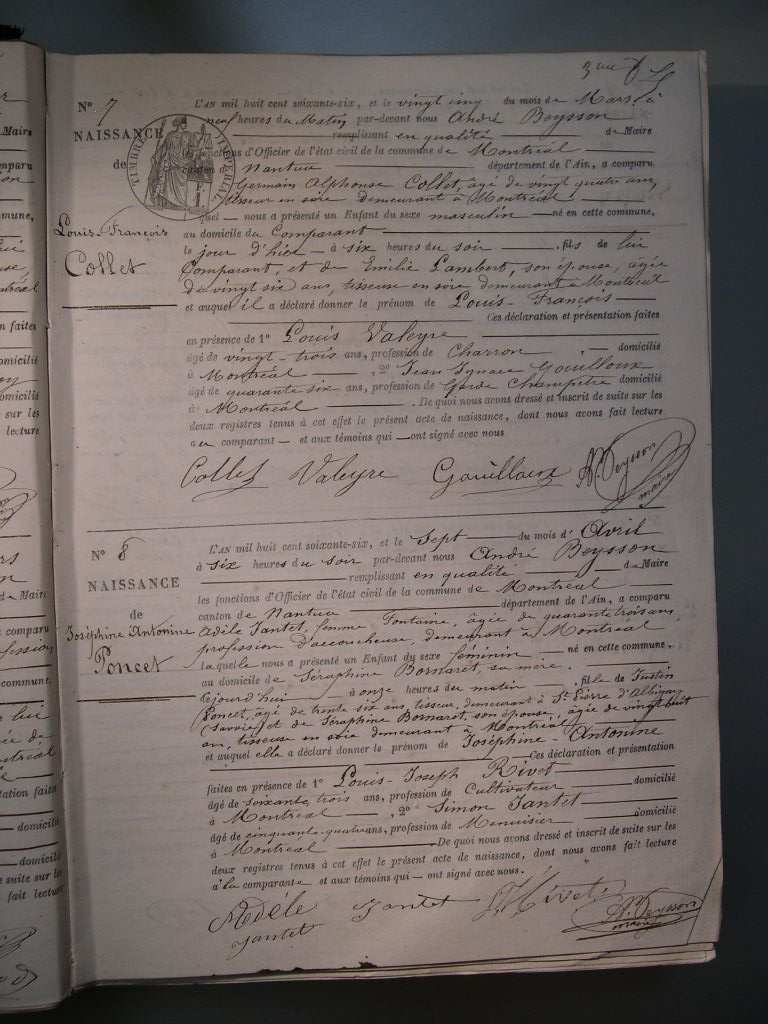 3me
N° 7
NAISSANCE
de
Louis-François
Collet
TIMBRE IMPERIAL
L'AN mil huit cent soixante-six, et le vingt cinq du mois de Mars à
neuf heures du Matin par-devant nous André Beysson
remplissant en qualité de Maire
les fonctions d'Officier de l'état civil de la commune de Montréal
canton de Nantua département de l'Ain, a comparu
Germain Alphonse Collet, âgé de vingt quatre ans,
tisseur en soie demeurant à Montréal
lequel nous a présenté un Enfant du sexe masculin né en cette commune,
au domicile du Comparant
le jour d'hier à six heures du soir fils de lui
Comparant, et de Emilie Lambert, son épouse, âgée
de vingt six ans, tisseuse en soie demeurant à Montréal
et auquel il a déclaré donner le prénom de Louis-François
Ces déclaration et présentation faites
en présence de 1° Louis Valeyre
âgé de vingt-trois ans, profession de Charron domicilié
à Montréal, 2° Jean Ignace Gouilloux
âgé de quarante six ans, profession de Garde Champêtre domicilié
à Montréal. De quoi nous avons dressé et inscrit de suite sur les
deux registres tenus à cet effet le présent acte de naissance, dont nous avons fait lecture
au comparant et aux témoins qui ont signé avec nous
Collet Valeyre Gouilloux A. Beysson
maire
N° 8
NAISSANCE
de
Joséphine Antonine
Poncet
L'AN mil huit cent soixante-six, et le Sept du mois d'Avril
à six heures du soir par-devant nous André Beysson
remplissant en qualité de Maire
les fonctions d'Officier de l'état civil de la commune de Montréal
canton de Nantua département de l'Ain, a comparu
Adèle Jantet, femme Fontaine, âgée de quarante trois ans
profession d'accoucheuse, demeurant à Montréal
laquelle nous a présenté un Enfant du sexe féminin né en cette commune,
au domicile de Séraphine Bornaret, sa mère.
cejourd'hui à onze heures du matin, fille de Justin
Poncet, âgé de trente six ans, tisseur, demeurant à St Pierre d'Albigny
(Savoie) et de Séraphine Bornaret, son épouse, âgée de vingt huit
ans, tisseuse en soie demeurant à Montréal
et auquel elle a déclaré donner le prénom de Joséphine-Antonine
Ces déclaration et présentation
faites en présence de 1° Louis-Joseph Rivet
âgé de soixante trois ans, profession de Cultivateur domicilié
à Montréal, 2° Simon Jantet
âgé de cinquante quatre ans, profession de Menuisier domicilié
à Montréal De quoi nous avons dressé et inscrit de suite sur les
deux registres tenus à cet effet le présent acte de naissance, dont nous avons fait lecture
à la comparante et aux témoins qui ont signé avec nous.
Adèle Jantet Rivet A. Beysson
Jantet maire